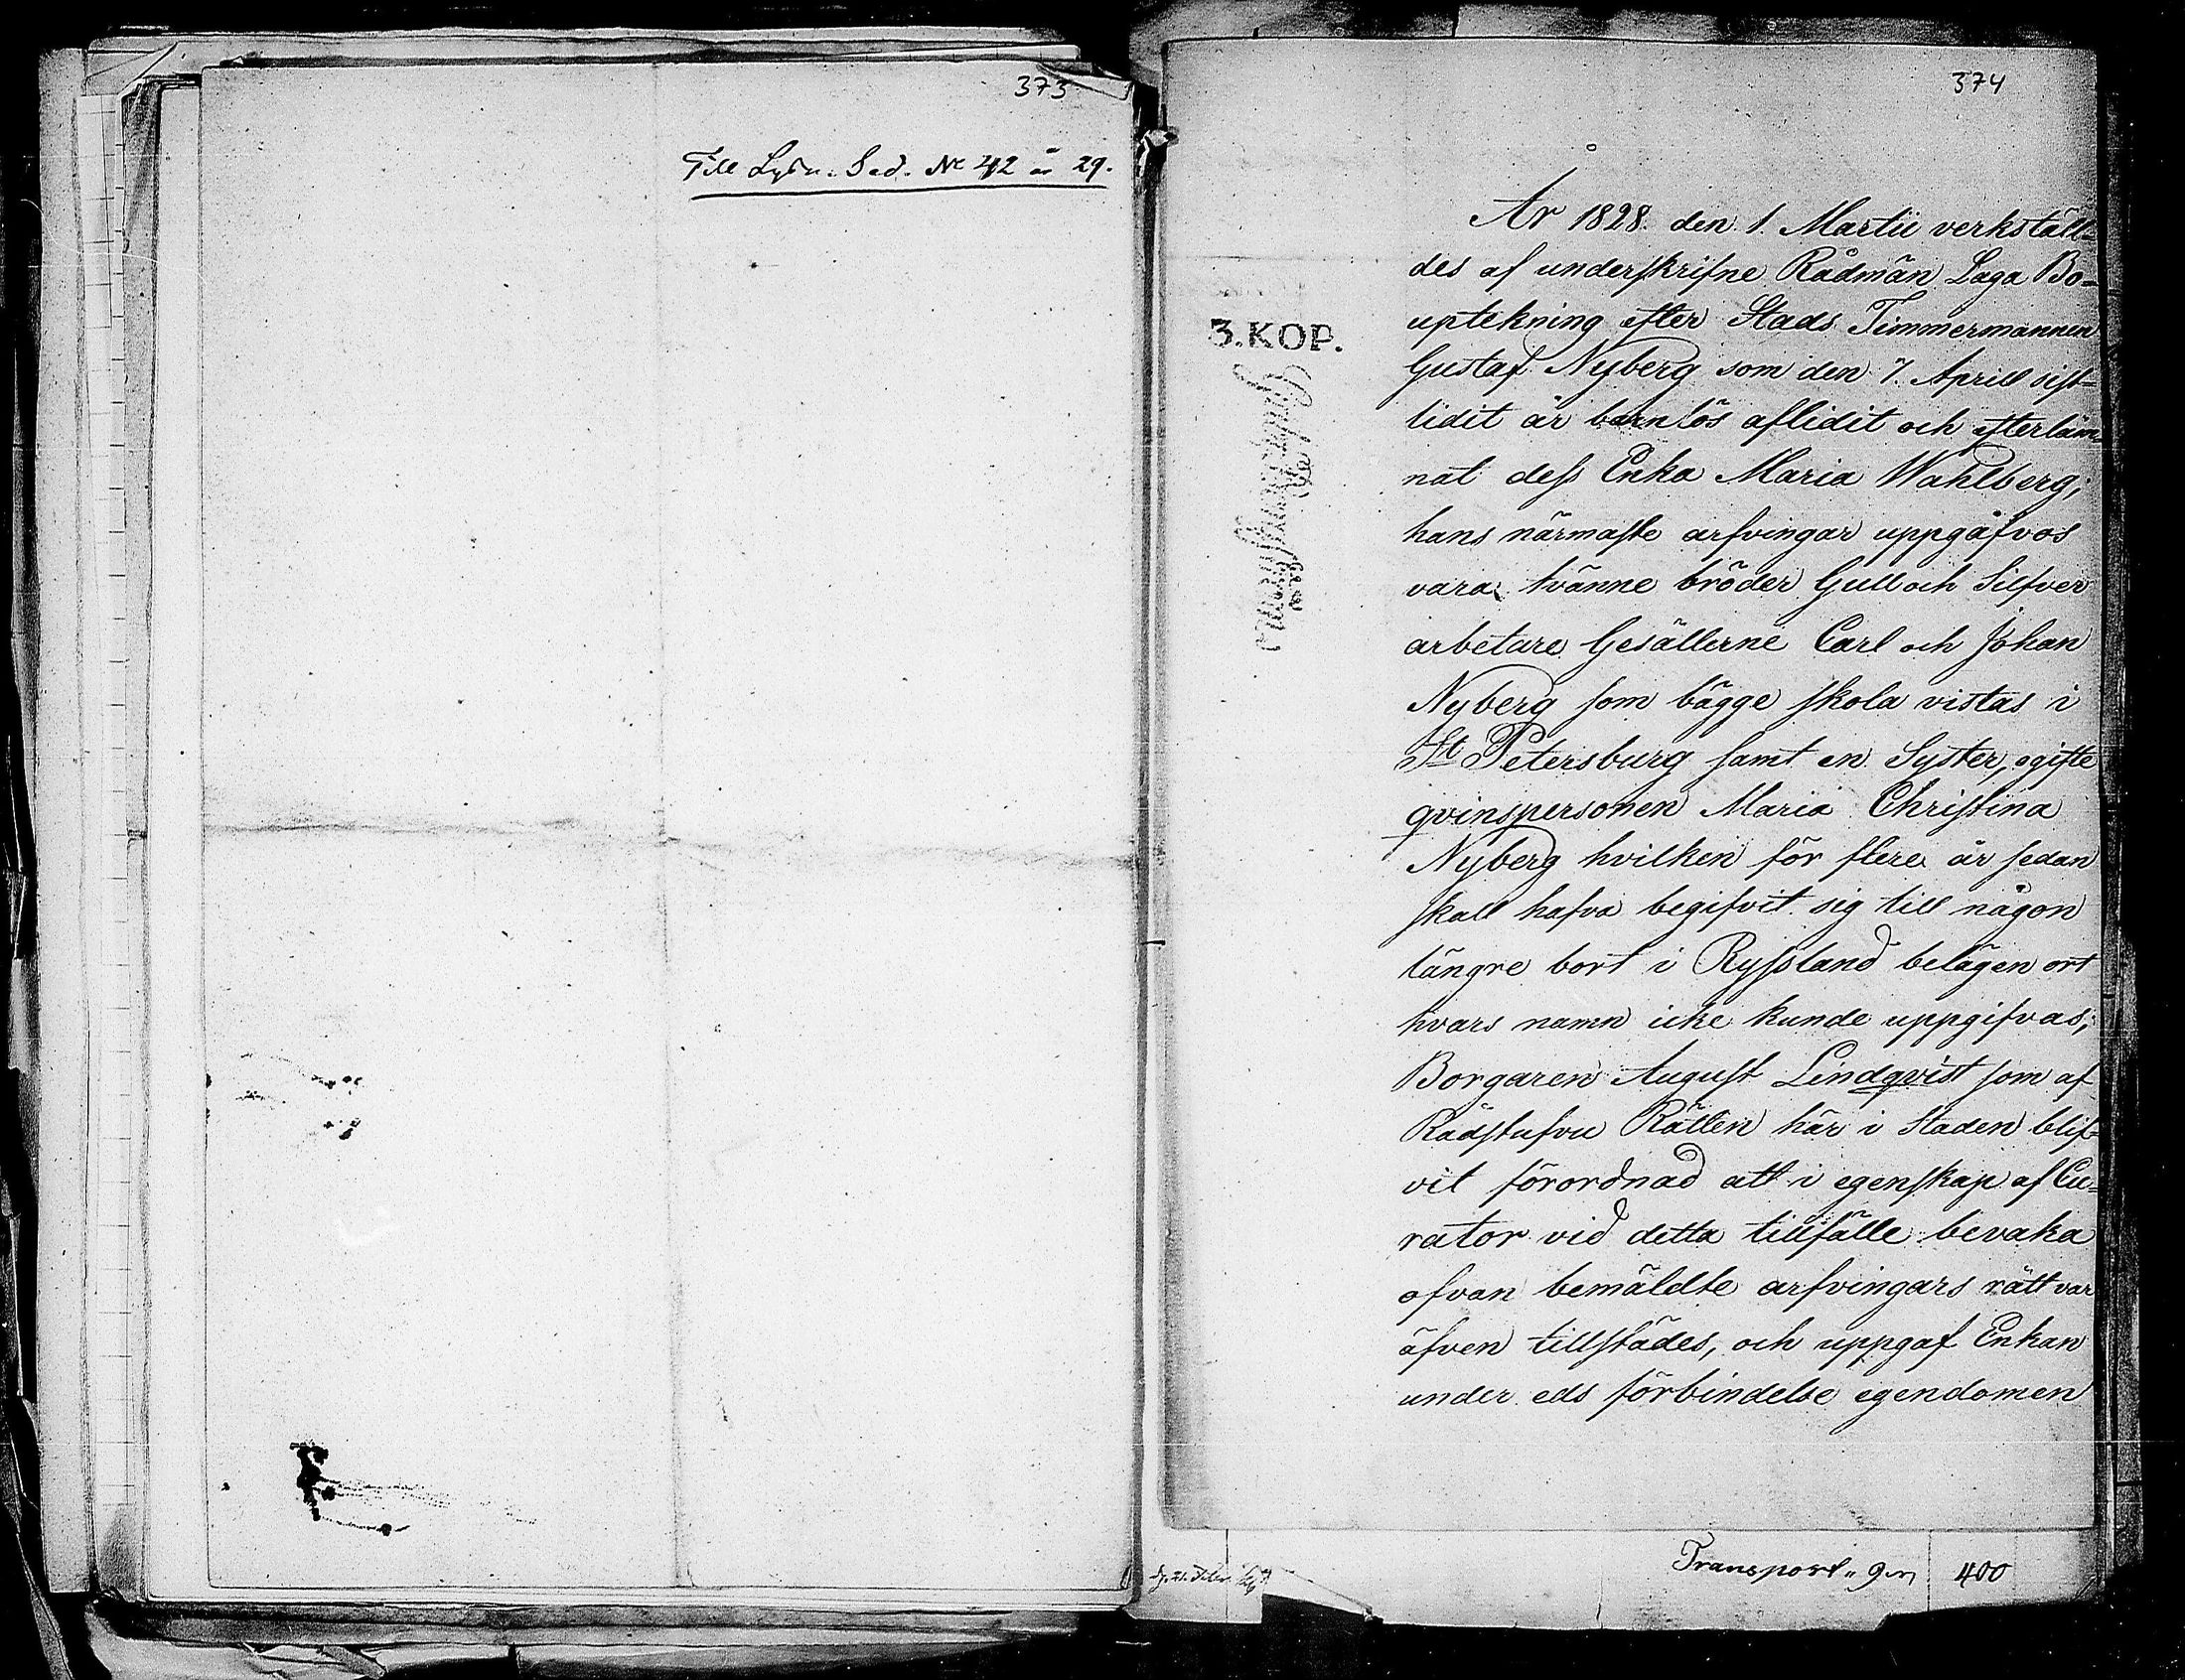 373
Till Lysn. Sed. No 42 år 29.
374
3. KOP.
År 1828. den 1. Martii verkställ-
des af underskrifne Rådmän Laga Bo-
uptekning efter Stads Timmermannen
Gustaf Nyberg som den 7. Aprill sist-
lidit år barnlös aflidit och efterläm
nat dess Enka Maria Wahlberg;
hans närmaste arfvingar uppgåfvos
vara, tvänne bröder Gull och Silfver
arbetare Gesällerne Carl och Johan
Nyberg som bägge skola vistas i
St Petersburg samt en Syster, ogifte
qvinspersonen Maria Christina
Nyberg hvilken för flere år sedan
skall hafva begifvit sig till någon
längre bort i Ryssland belägen ort
hvars namn icke kunde uppgifvas;
Borgaren August Lindqvist som af
Rådstufvu Rätten här i Staden blif-
vit förordnad att i egenskap af Cu-
rator vid detta tillfälle bevaka
ofvan bemäldte arfvingars rätt var
äfven tillstädes, och uppgaf Enkan
under eds förbindelse egendomen
Transport 400